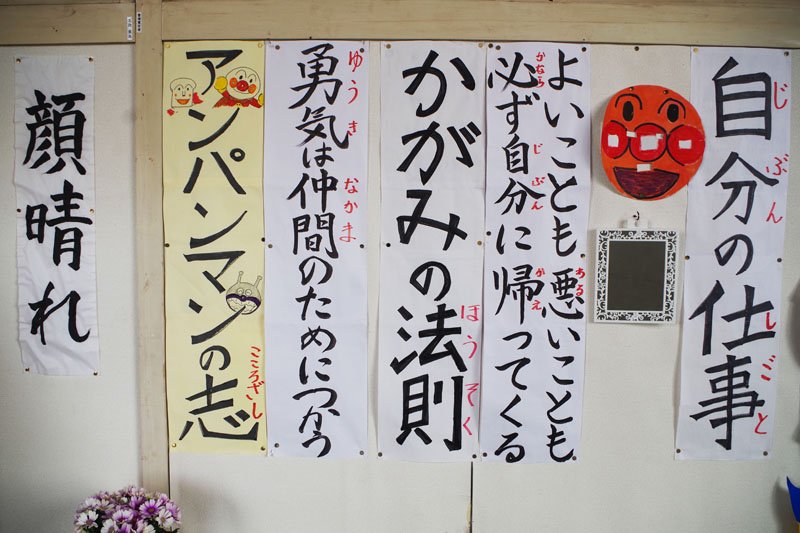 自分の仕事
じぶん しごと
よいことも悪いことも
ある
必ず自分に帰ってくる
かなら じぶん かえ
かがみの法則
ほうそく
勇気は仲間のためにつかう
ゆうき なかま
アンパンマンの志
こころざし
顔晴れ